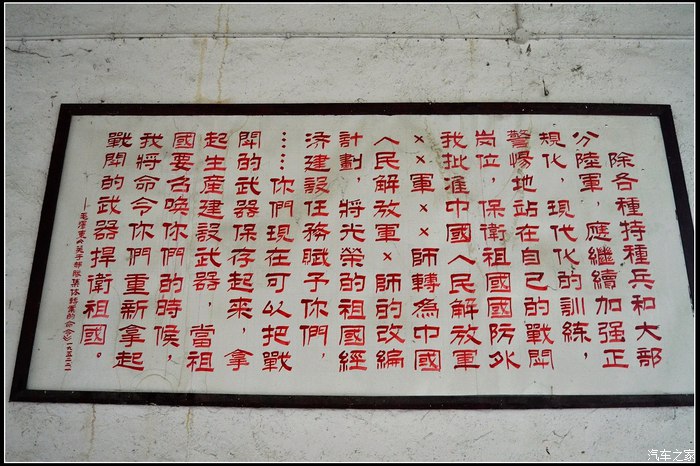 除各種特種兵和大部
分陸軍，應繼續加强正
規化，現代化的訓練，
警惕地站在自己的戰鬥
崗位，保衛祖國國防外
我批准中國人民解放軍
××軍××師轉為中國
人民解放軍×師的改編
計劃，將光榮的祖國經
济建設任務賦予你們，
……你們現在可以把戰
鬥的武器保存起來，拿
起生産建設武器，當祖
國要召唤你們的時候，
我將命令你們重新拿起
戰鬥的武器捍衛祖國。
—毛澤東《某于部隊集体转業的命令》一九五二、二、一
汽车之家